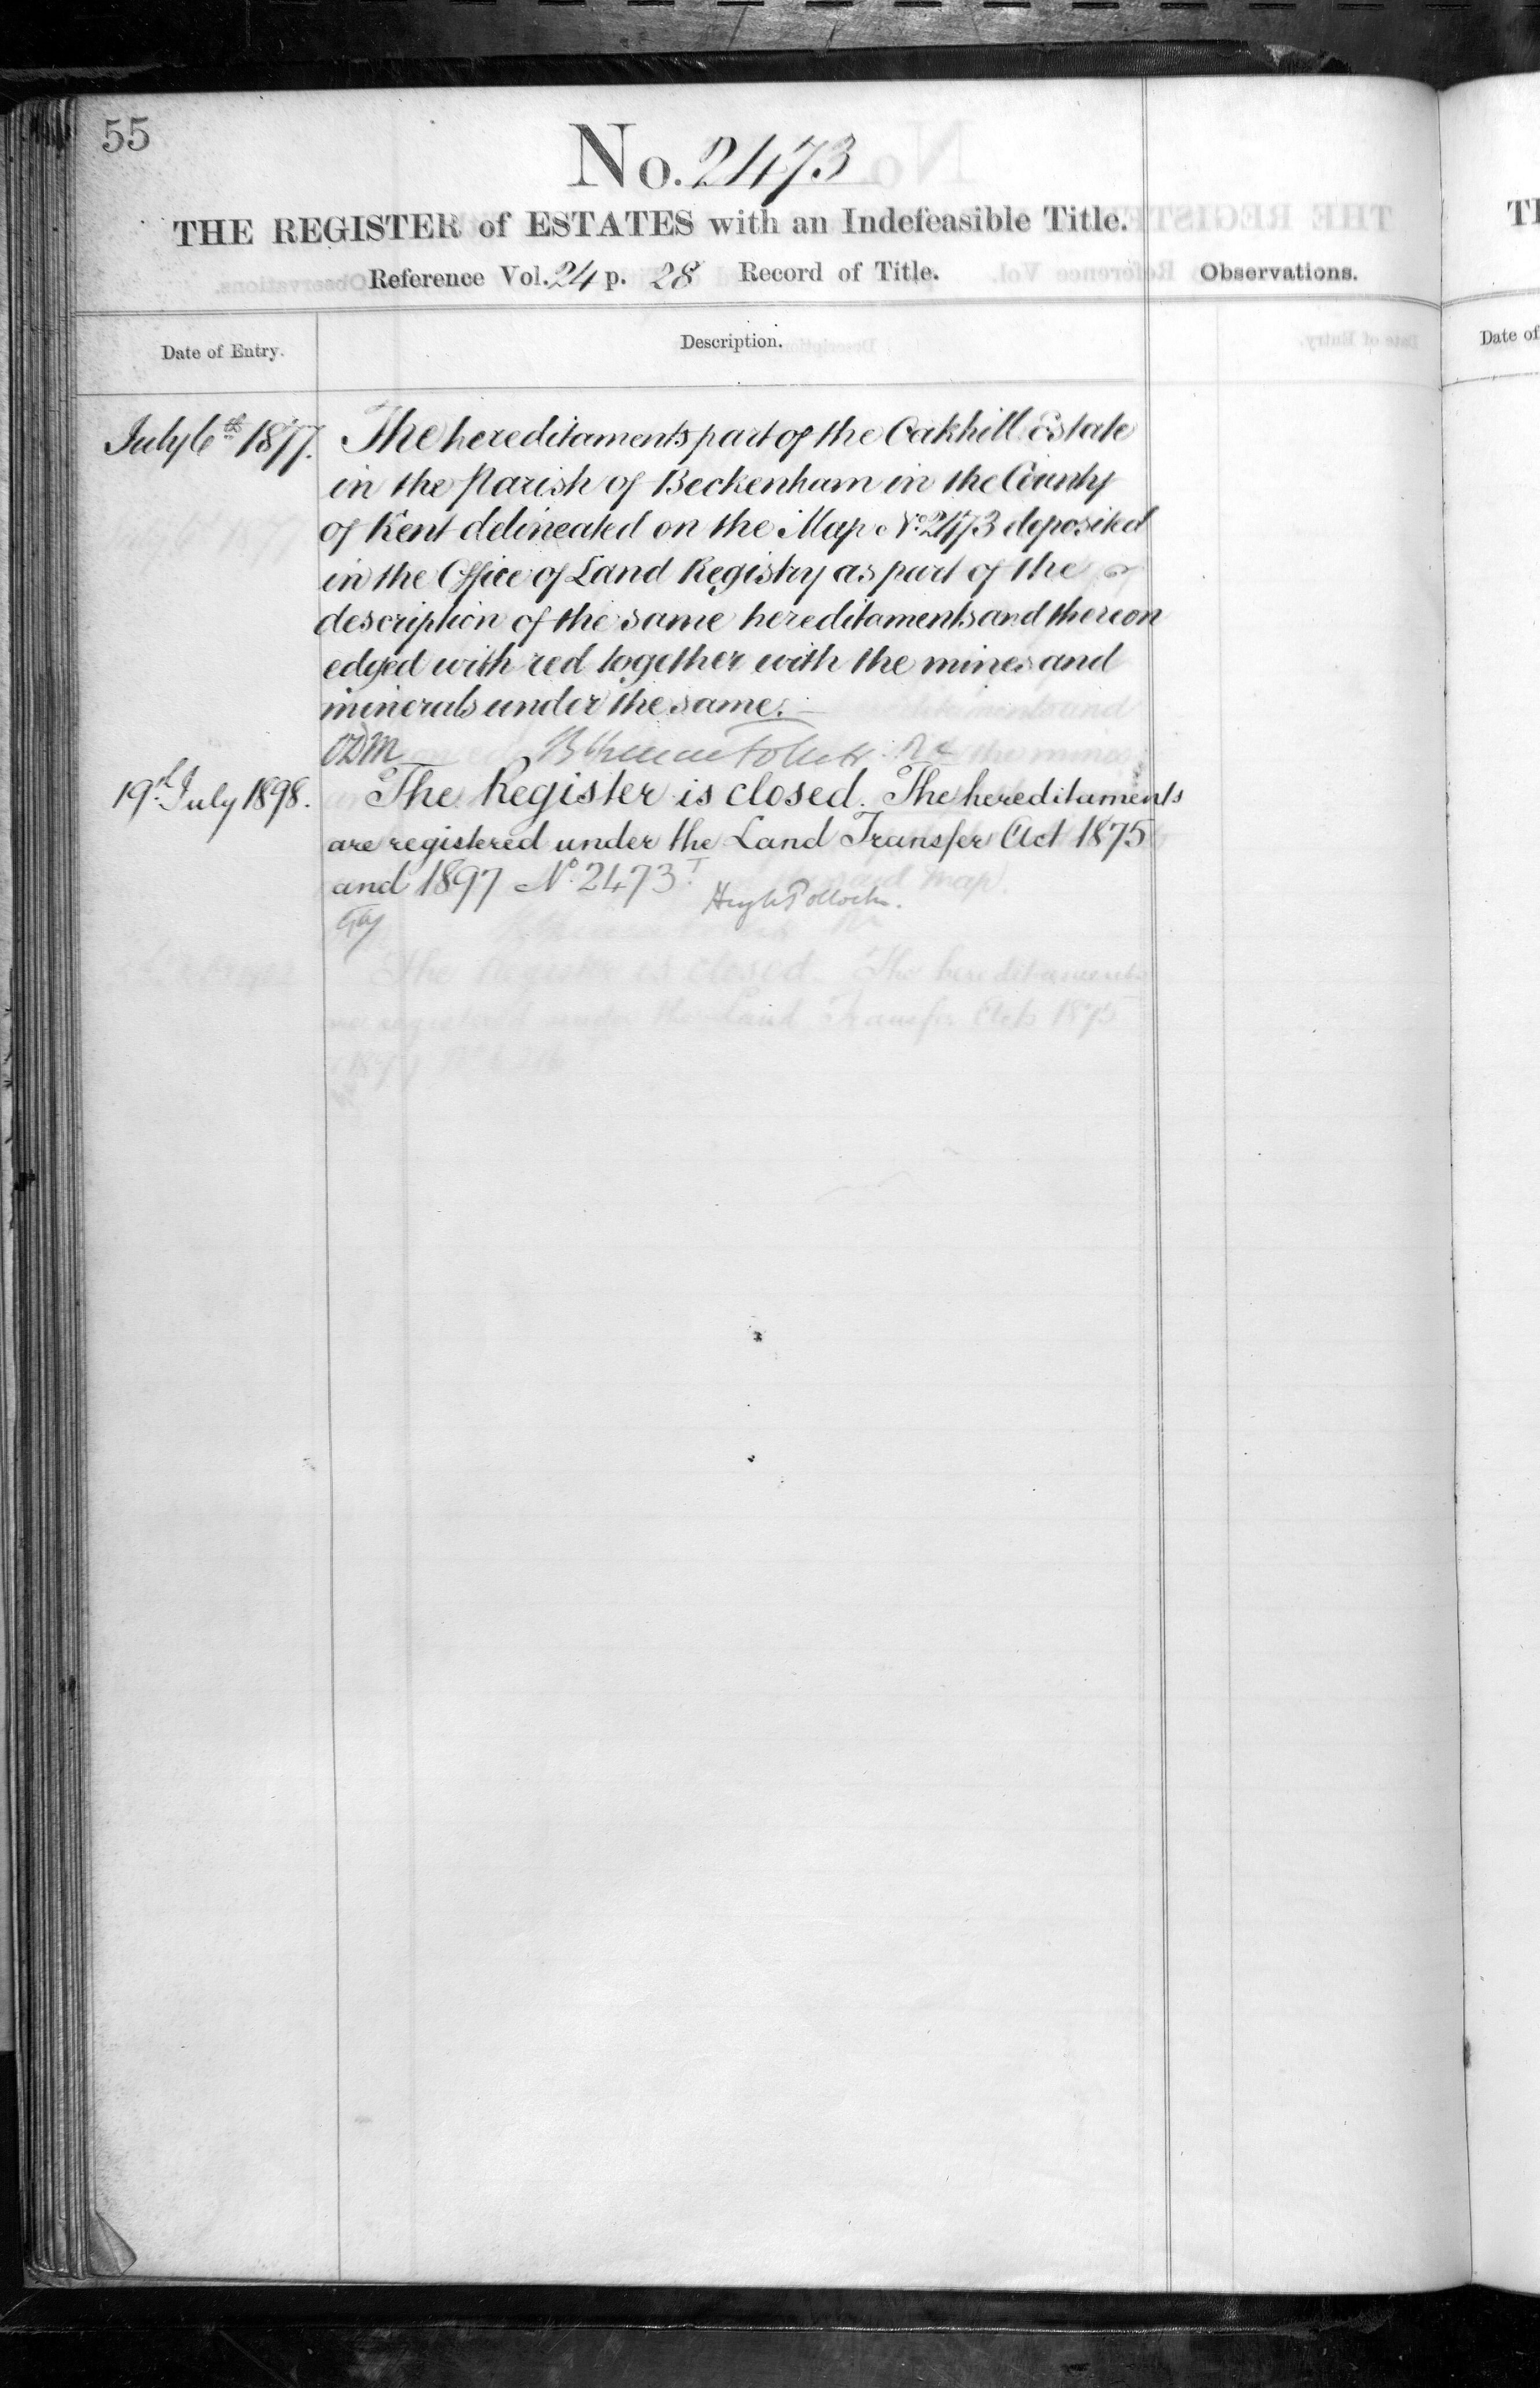 55
No. 2473
THE REGISTER of ESTATES with an Indefeasible Title.
Reference Vol. 24 p. 28 Record of Title.
Observations.
Date of Entry.
Description.
Date of
July 6th 1877.
The hereditaments part of the Oakhill Estate
in the Parish of Beckenham in the County
of Kent delineated on the Map No. 2473 deposited
in the Office of Land Registry as part of the
description of the same hereditaments and thereon
edged with red together with the mines and
minerals under the same.
19th July 1898.
The Register is closed. The hereditaments
are registered under the Land Transfer Act 1875
and 1897 No. 2473T.
Hugh Pollock.